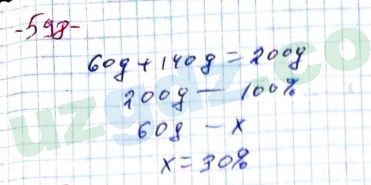 -598-
60g + 140g = 200g
200g — 100%
60g — x
x = 30%